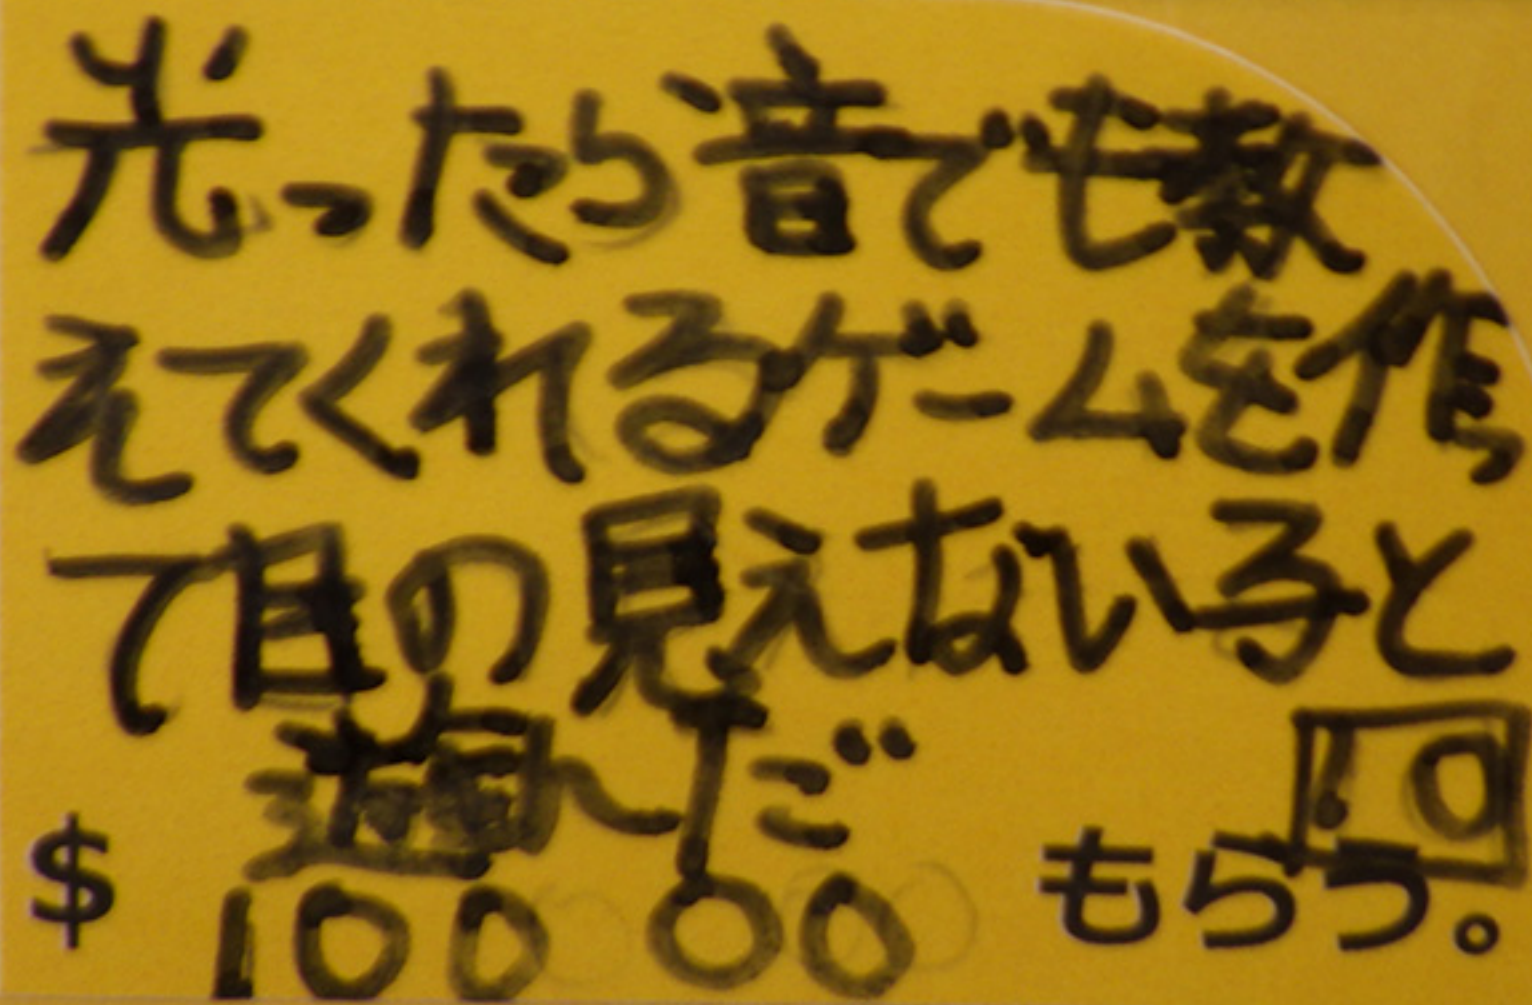 光ったら音でも教
えてくれるゲームを作っ
て目の見えない子と
遊んだ
10
$ 10000 もらう。